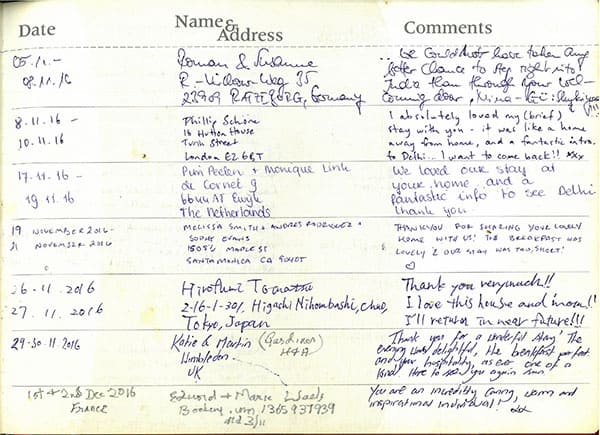 Date
Name & Address
Comments
05.11. –
08.11.16
Roman & Susanne
R.-Village-Weg 35
23909 RATZEBURG, Germany
... we could not have taken any
better chance to step right into
India than through your wel-
coming door, Nina –
8.11.16 –
10.11.16
Phillip Schöne
16 Hutton House
Turin Street
London E2 6BT
I absolutely loved my (brief)
stay with you – it was like a home
away from home, and a fantastic intro.
to Delhi... I want to come back!! xxx
17.11.16 –
19.11.16
Pim Peelen + Monique Link
de Cornet 9
6644 AT Ewijk
The Netherlands
We loved our stay at
your home and a
fantastic info to see Delhi
thank you
19 NOVEMBER 2016 –
21 NOVEMBER 2016
MELISSA SMITH + ANDRES RODRIGUEZ +
SOPHIE EVANS
MAPLE ST
SANTA MONICA CA 90405
THANK YOU FOR SHARING YOUR LOVELY
HOME WITH US! THE BREAKFAST WAS
LOVELY & OUR STAY WAS TOO SHORT!
26.11.2016
27.11.2016
Hirofumi
2-16-1-301, Higashi Nihombashi, Chuo,
Tokyo, Japan
Thank you very much!!
I love this house and mom!!
I'll return in near future!!!
29-30.11.2016
Katie & Martin (Gardiner
H&A)
Wimbledon
UK
Thank you for a wonderful stay! The
evening was delightful, the breakfast perfect
and your hospitality, as ever one of a
kind. Hope to see you again soon
1st & 2nd Dec 2016
France
Edward + Marie
Booking.com 1365937939
3/11
You are an incredibly caring, warm and
inspirational individual! xx